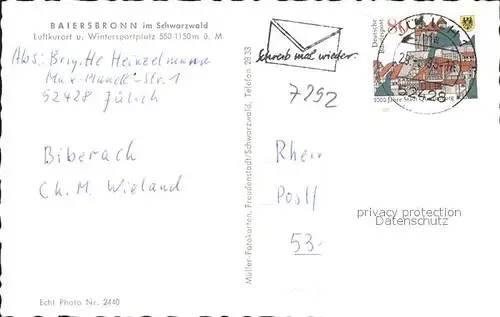 BAIERSBRONN im Schwarzwald
Luftkurort u. Wintersportplatz 550-1150 m ü. M.
Abs: Brigitte Heinzelmann
Str. 1
52428 Jülich
Biberach
Ch. M. Wieland
Echt Photo Nr. 2440
Müller-Fotokarten, Freudenstadt/Schwarzwald, Telefon 28 33
Schreib mal wieder.
7292
Deutsche
Bundespost
80
1000 Jahre Stadt
52428
Rhein
Postf
53-
privacy protection
Oldthing.de